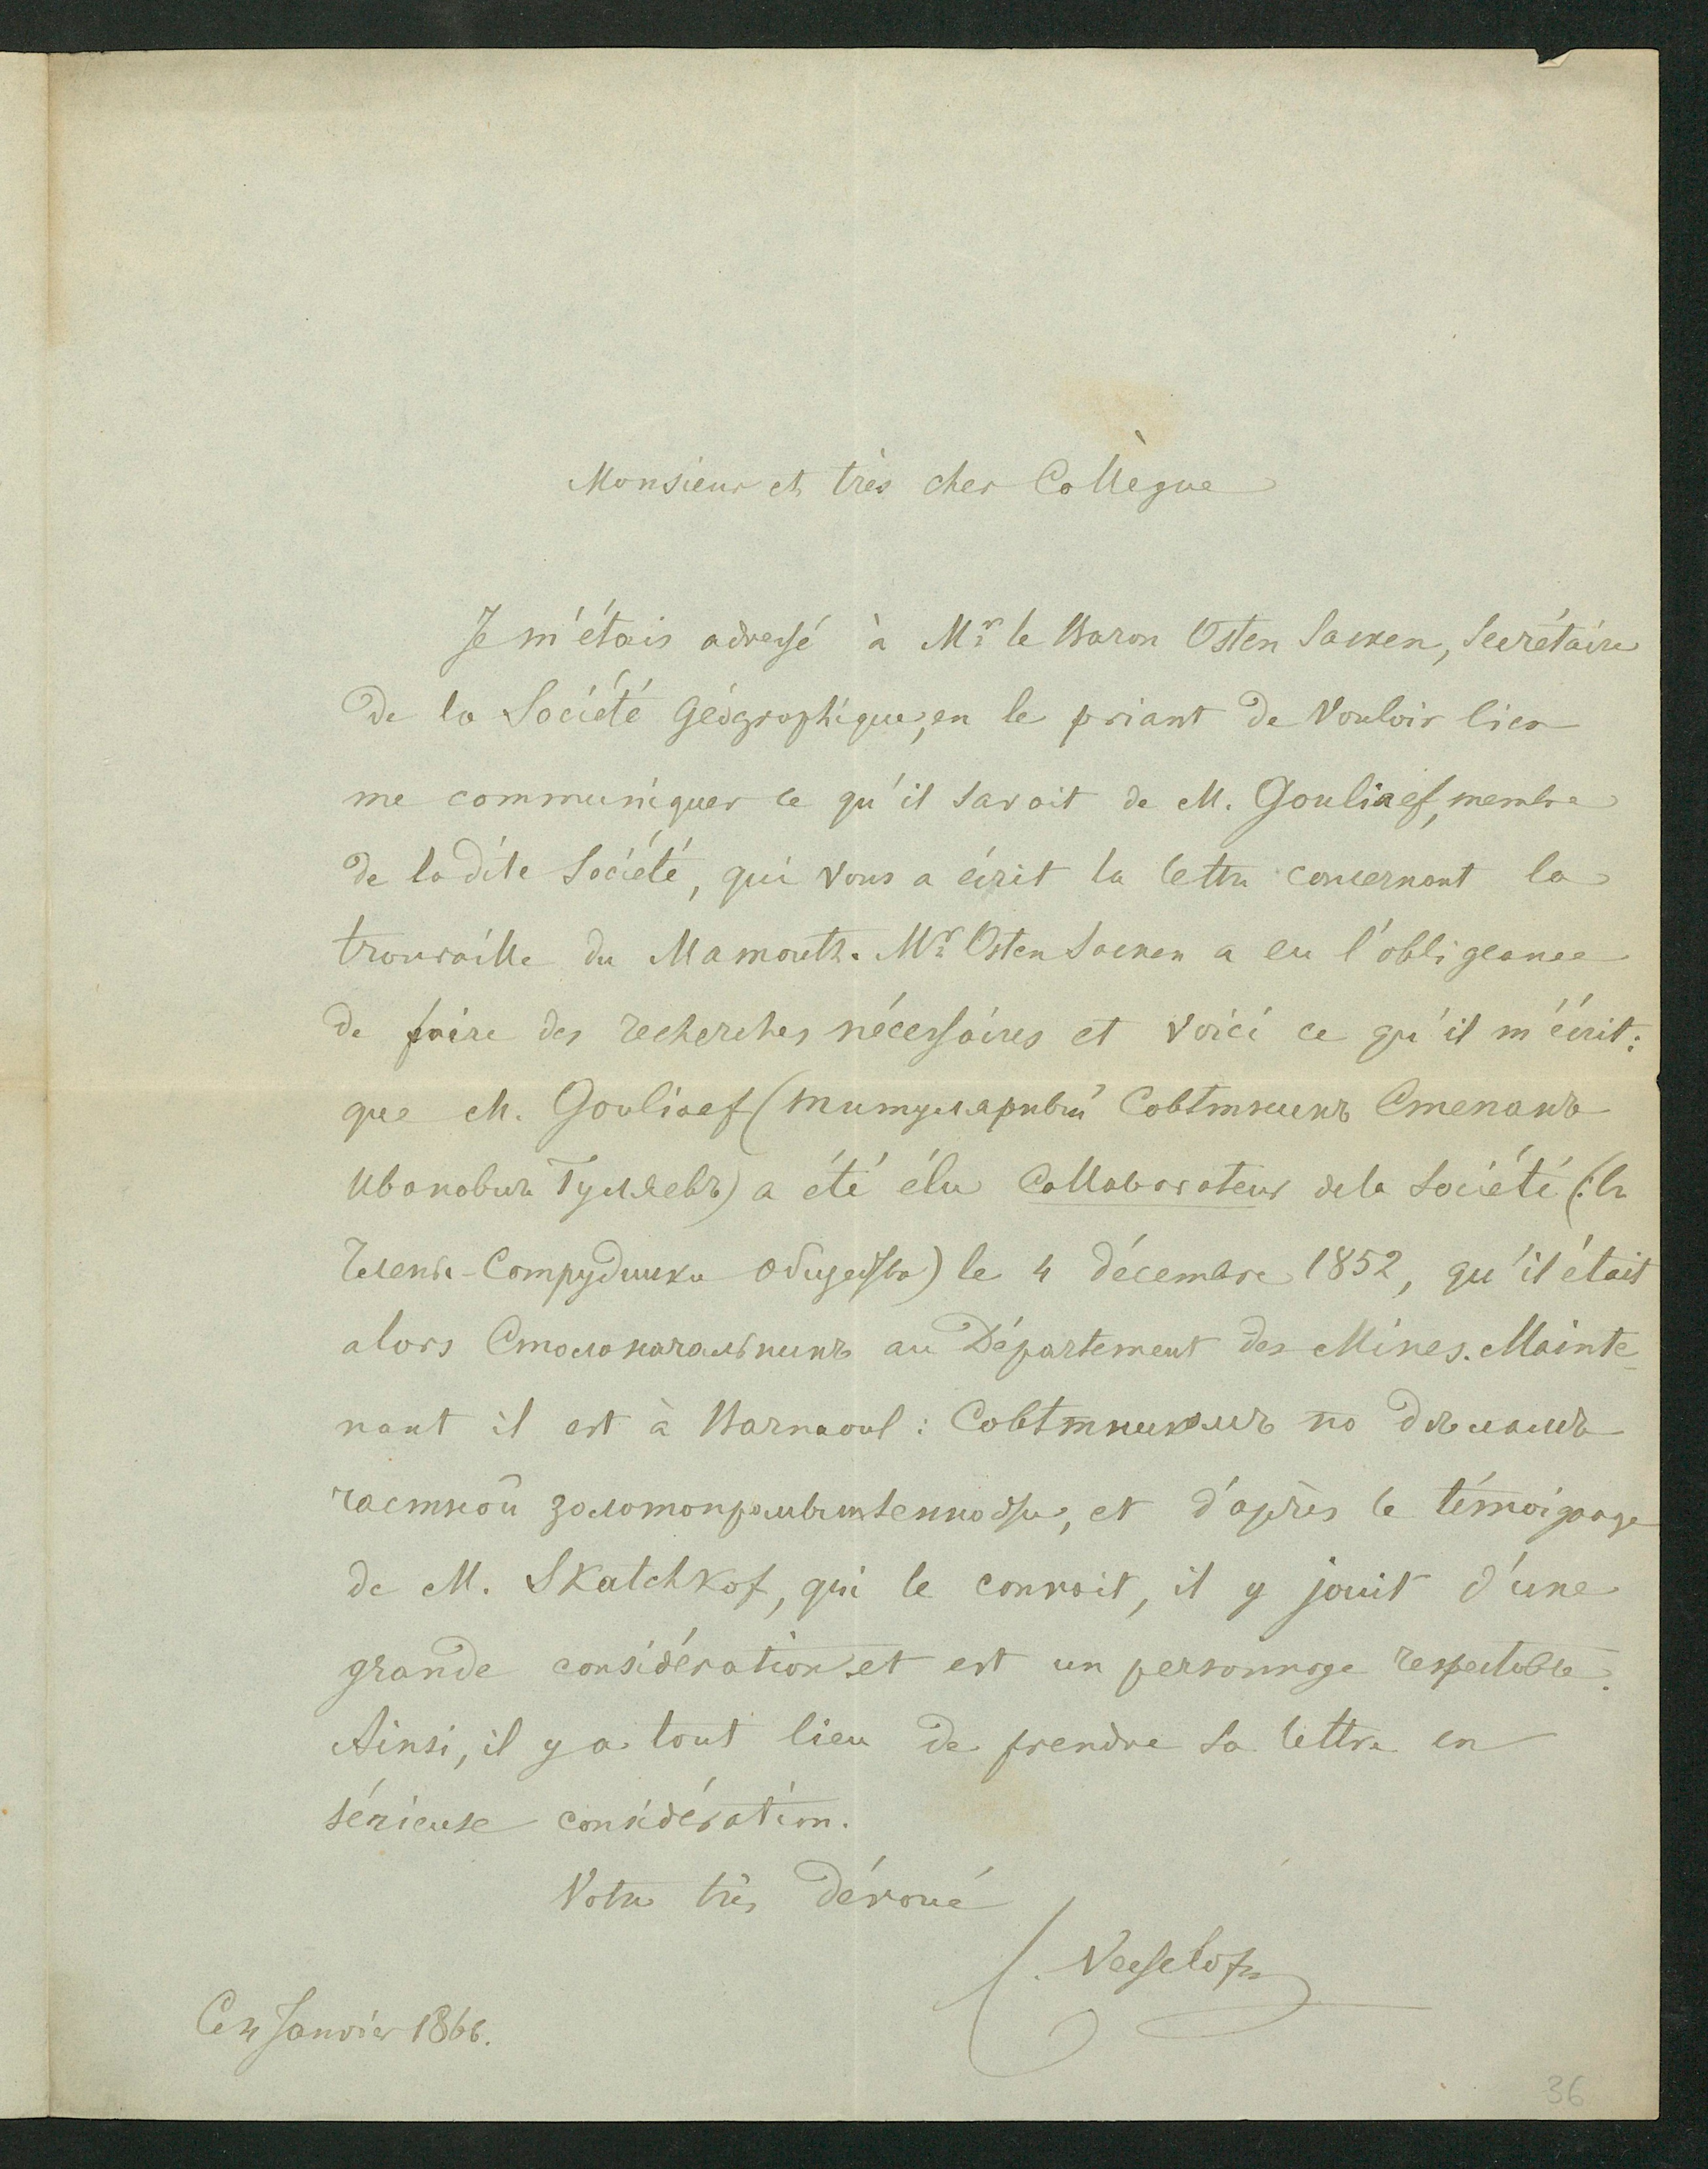 Monsieur et très cher Collègue
Je m'étais adressé à Mr. le Baron Osten Sacken, Secrétaire
de la Société Géographique, en le priant de vouloir bien
me communiquer ce qu'il savait de M. Gouliaef, membre
de la dite Société, qui vous a écrit la lettre concernant la
trouvaille du Mamouth. Mr. Osten Sacken a eu l'obligeance
de faire des recherches nécessaires et voici ce qu'il m'écrit:
que M. Gouliaef (титулярный Совѣтникъ Степанъ
Ивановичъ Гуляевъ) a été élu Collaborateur de la Société (въ
Члены-Сотрудники Общества) le 4 décembre 1852, qu'il était
alors Столоначальникъ au Département des Mines. Mainte-
nant il est à Barnaoul: Совѣтникомъ по дѣламъ
частной золотопромышленности, et d'après le témoignage
de M. Skatchkof, qui le connait, il y jouit d'une
grande considération et est un personnage respectable.
Ainsi, il y a tout lieu de prendre sa lettre en
sérieuse considération.
Votre très dévoué
C. Vesselofs
Ce 4 Janvier 1866.
36